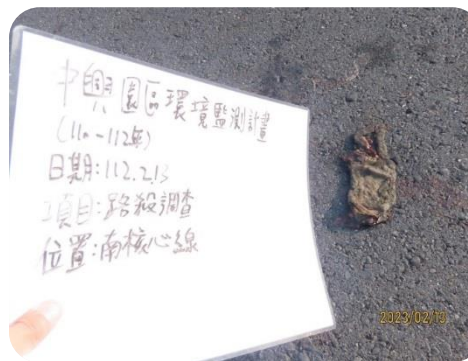 中興園區環境監測計畫
(110~112年)
日期:112.2.13
項目:路殺調查
位置:南核心線
2023/02/13